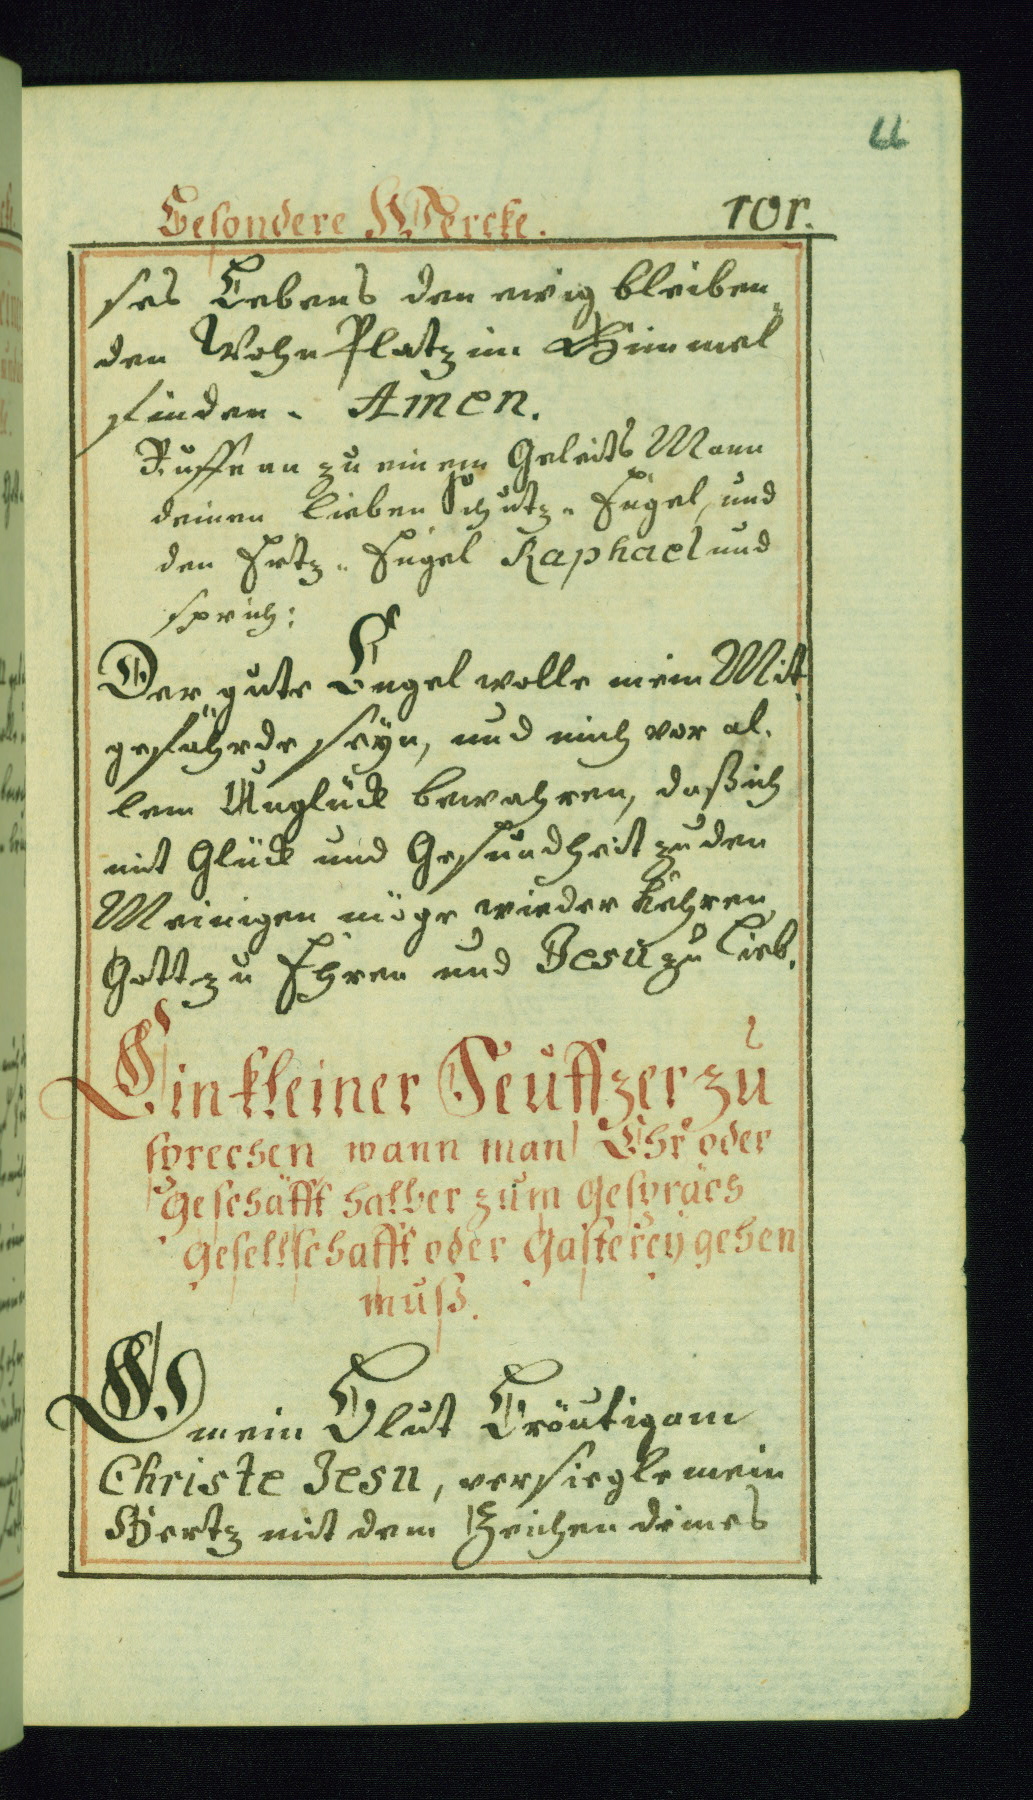 66
Besondere Wercke. 101.
ses Lebens den ewig bleiben-
den Wohn Platz im Himmel
finden. Amen.
Ruffe an zu einem Geleits Mann
deinen lieben Schutz-Engel, und
den Ertz-Engel Raphael und
sprich:
Der gute Engel wolle mein Mit
gefährde seÿn, und mich vor al-
lem Unglück bewahren, daß ich
mit Glück und Gesundheit zu den
Meinigen möge wieder kehren
Gott zu Ehren und Jesu zu Lieb.
Ein kleiner Seuffzer zu
sprechen wann man Ehr oder
Geschäfft halber zum Gespräch
Gesellschafft oder Gastereÿ gehen
muß.
O mein Blut Bräutigam
Christe Jesu, versiegle mein
Hertz mit dem Zeichen deines